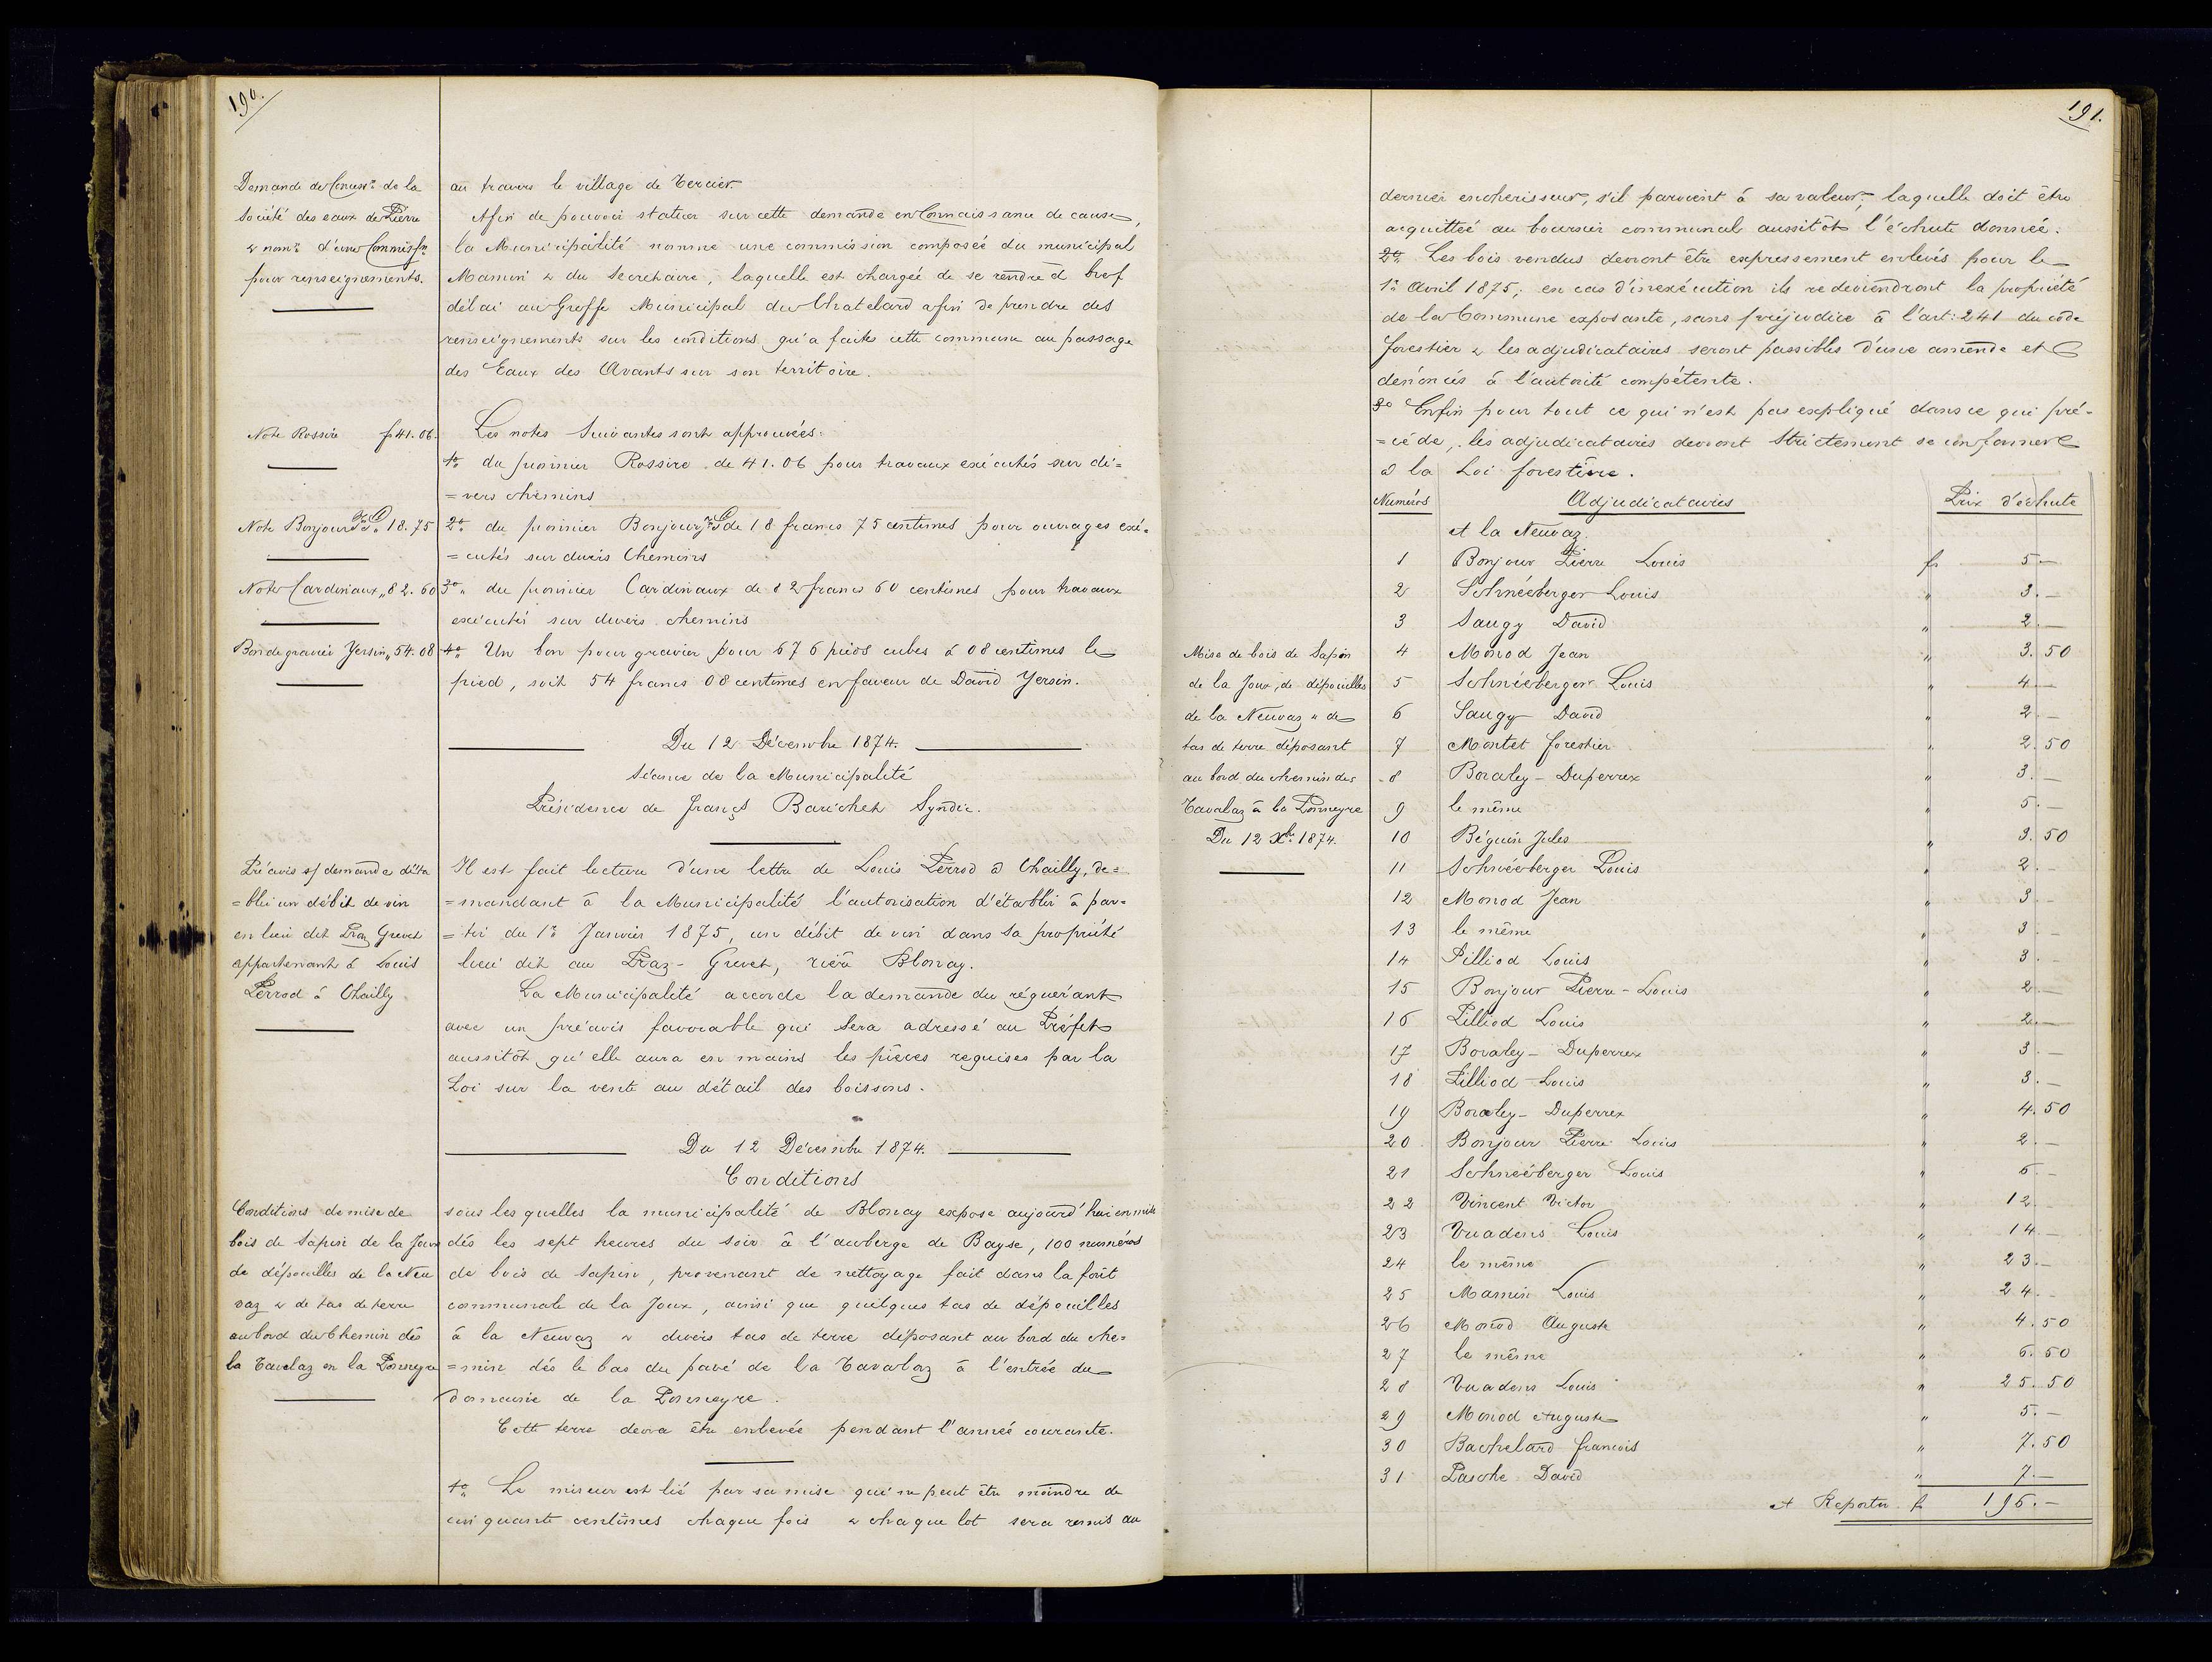 190.
Demande de Concess.n de la
Société des eaux de Pierre
& nom.n d'une Commiss.n
pour renseignements.
au travers le village de Tercier.
Afin de pouvoir statuer sur cette demande en Connaissance de cause,
la Municipalité nomme une commission composée du municipal
Mamin & du Secrétaire, laquelle est chargée de se rendre à bref
délai au Greffe Municipal du Chatelard afin de prendre des
renseignements sur les conditions qu'a faites cette commune au passage
des Eaux des Avants sur son territoire.
Les notes Suivantes sont approuvées:
Note Rossire fr 41.06.
1o du pionnier Rossire de 41.06 pour travaux exécutés sur di=
=vers chemins
Note Bonjour 18.75
2o du pionnier Bonjour de 18 francs 75 centimes pour ouvrages exé=
=cutés sur divers Chemins
Note Cardinaux „ 82.60
3o du pionnier Cardinaux de 82 francs 60 centimes pour travaux
exécutés sur divers chemins
Bon de gravier Yersin „ 54.08
4o Un bon pour gravier pour 676 pieds cubes à 08 centimes le
pied, soit 54 francs 08 centimes en faveur de David Yersin.
Du 12 Décembre 1874.
Séance de la Municipalité
Présidence de Franç.s Barichet Syndic.
Préavis s/ demande d'éta
=blir un débit de vin
en lieu dit Praz Grevet
appartenant à Louis
Perrod à Chailly
Il est fait lecture d'une lettre de Louis Perrod à Chailly, de=
=mandant à la Municipalité l'autorisation d'établir à par=
=tir du 1r Janvier 1875, un débit de vin dans Sa propriété
lieu dit au Praz-Grevet, rière Blonay.
La Municipalité accorde la demande du réquérant
avec un préavis favorable qui Sera adressé au Préfet
aussitôt qu'elle aura en mains les pièces requises par la
Loi sur la vente au détail des boissons.
Du 12 Décembre 1874.
Conditions
Conditions de mise de
bois de Sapin de la Joux
de dépouilles de la Neu
vaz & de tas de terre
au bord du Chemin dès
la Tavalaz en la Ponneyre
sous les quelles la municipalité de Blonay expose aujourd'hui en mise
dès les sept heures du Soir à l'auberge de Bayse, 100 numéros
de bois de Sapin, provenant de nettoyage fait dans la forêt
communale de la Joux, ainsi que quelques tas de dépouilles
à la Neuvaz & divers tas de terre déposant au bord du che=
=min dès le bas du pavé de la Tavalaz à l'entrée du
domaine de la Ponneyre.
Cette terre devra être enlevée pendant l'année courante.
1o Le miseur est lié par sa mise qui ne peut être moindre de
cinquante centimes chaque fois & chaque lot sera remis au
191.
dernier enchérisseur, s'il parvient à sa valeur, laquelle doit être
acquittée au boursier communal aussitôt l'échute donnée.
2o Les bois vendus devront être expressement enlevés pour le
1r Avril 1875; en cas d'inexécution ils redeviendront la propriété
de la Commune exposante, sans préjudice à l'art: 241 du code
forestier & les adjudicataires seront passibles d'une amende et
dénoncés à l'autorité compétente.
3o Enfin pour tout ce qui n'est pas expliqué dans ce qui pré=
=cède, les adjudicataires devront Strictement se conformer
à la Loi forestière.
Numéros Adjudicataires Prix d'échute
Mise de bois de Sapin
de la Joux, de dépouilles
de la Neuvaz & de
tas de terre déposant
au bord du chemin des
Tavalaz à la Ponneyre
Du 12 Xbr. 1874.
A la Neuvaz.
1 Bonjour Pierre Louis fr 5.—
2 Schnéeberger Louis „ 3.—
3 Saugy David „ 2.—
4 Monod Jean „ 3.50
5 Schnéeberger Louis „ 4.—
6 Saugy David „ 2.—
7 Montet forestier „ 2.50
8 Boraley-Duperrex „ 3.—
9 le même „ 5.—
10 Béguin Jules „ 3.50
11 Schnéeberger Louis „ 2.—
12 Monod Jean „ 3.—
13 le même „ 3.—
14 Pilliod Louis „ 3.—
15 Bonjour Pierre-Louis „ 2.—
16 Pilliod Louis „ 2.—
17 Boraley-Duperrex „ 3.—
18 Pilliod-Louis „ 3.—
19 Boraley-Duperrex „ 4.50
20 Bonjour Pierre Louis „ 2.—
21 Schneéberger Louis „ 6.—
22 Vincent Victor „ 12.—
23 Vuadens Louis „ 14.—
24 le même „ 23.—
25 Mamin Louis „ 24.—
26 Monod Auguste „ 4.50
27 le même „ 6.50
28 Vuadens Louis „ 25.50
29 Monod Auguste „ 5.—
30 Bachelard François „ 7.50
31 Pasche David „ 7.—
A Reporter fr 195.—